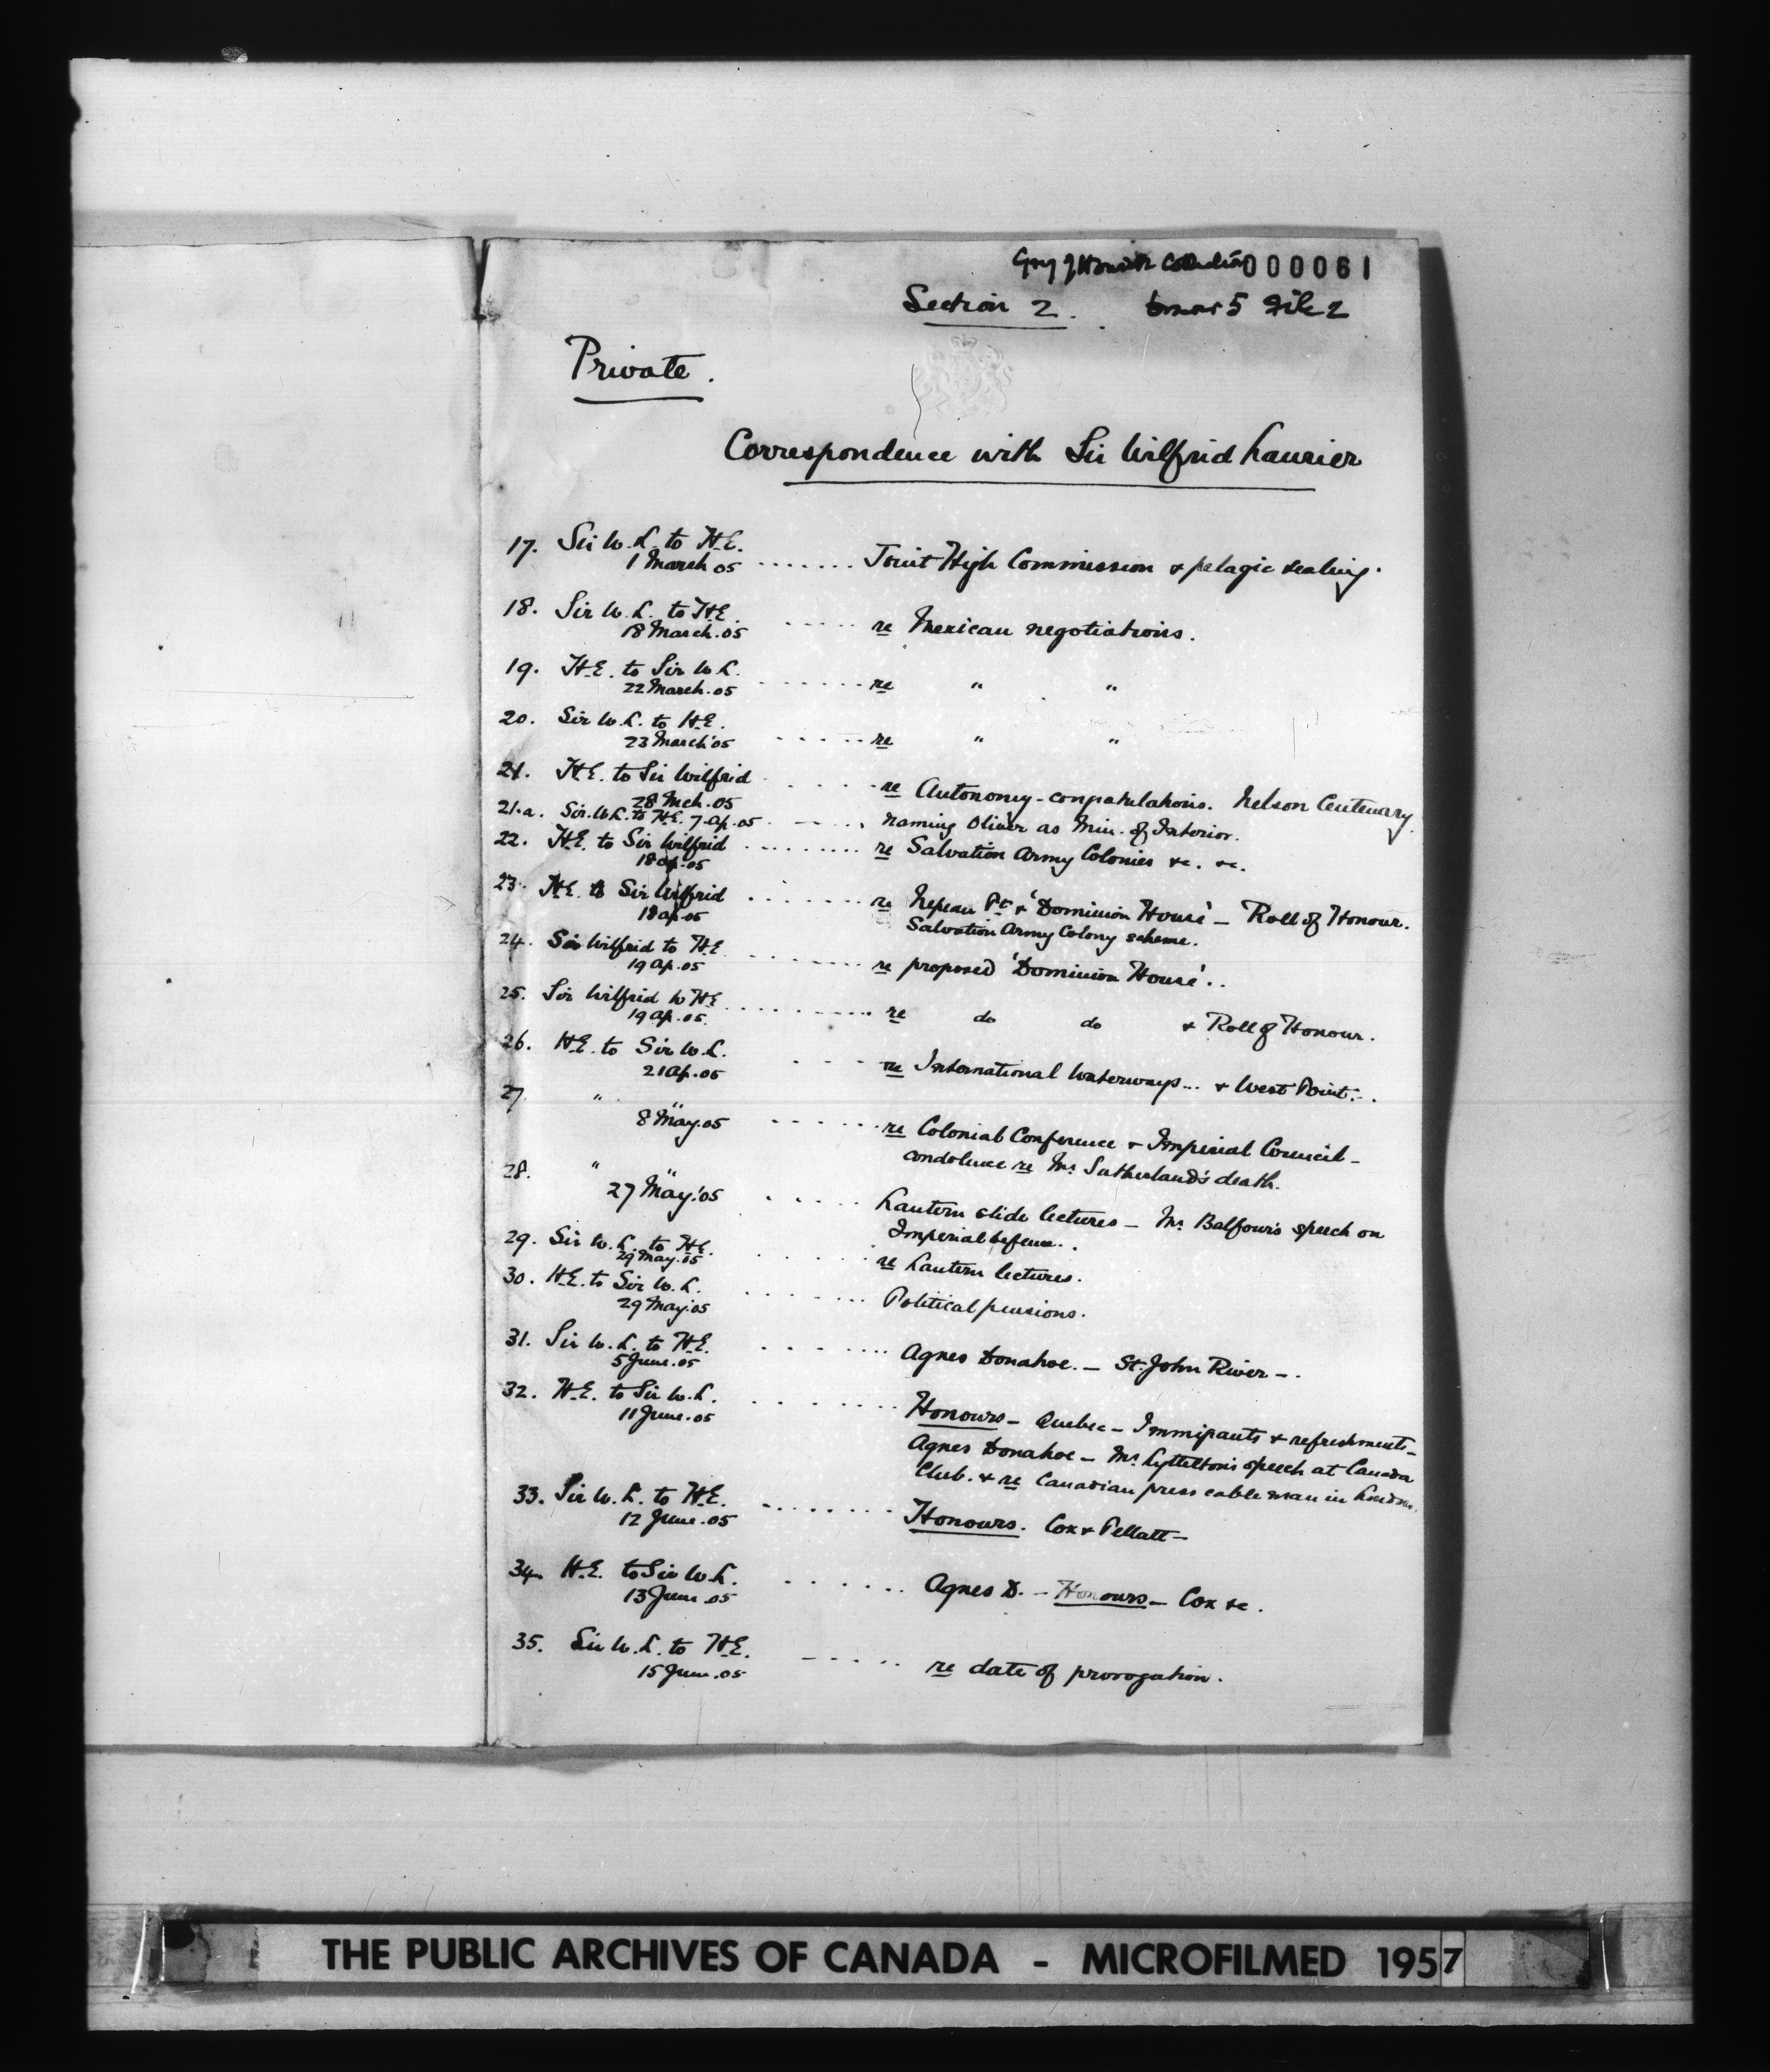 Grey of Howick Collection 000061
Section 2. 5 File 2
Private.
Correspondence with Sir Wilfrid Laurier
17. Sir W.L. to H.E.
1 March 05 ....... Joint High Commission & pelagic sealing.
18. Sir W.L. to H.E.
18 March.05 ..... re Mexican negotiations.
19. H.E. to Sir W.L.
22 March.05 ....... re " "
20. Sir W.L. to H.E.
23 March'05 ..... re " "
21. H.E. to Sir Wilfrid
28 Mch.05 ..... re Autonomy - congratulations. Nelson Centenary.
21.a. Sir.W.L. to H.E. 7.ap.05 ..... naming Oliver as Min. of Interior.
22. H.E. to Sir Wilfrid
18 ap.05 ......... re Salvation Army Colonies &c. &c.
23. H.E. to Sir Wilfrid
18 ap.05 ....... re Nepean Pt. & 'Dominion House' - Roll of Honour.
Salvation Army Colony scheme.
24. Sir Wilfrid to H.E.
19 ap.05 ....... re proposed 'Dominion House'..
25. Sir Wilfrid to H.E.
19 ap.05. .......... re do do & Roll of Honour.
26. H.E. to Sir W.L.
21 ap.05 ..... re International Waterways... & West Point...
27. " "
8 May.05 ...... re Colonial Conference & Imperial Council -
condolence re Mr. Sutherland's death.
28. " "
27 May.'05 ..... Lantern slide lectures - Mr. Balfour's speech on
Imperial defence..
29. Sir W.L. to H.E.
29 May.05 ..... re Lantern lectures.
30. H.E. to Sir W.L.
29 May.05 ....... Political pensions.
31. Sir W.L. to H.E.
5 June.05 ....... Agnes Donahoe. - St. John River -.
32. H.E. to Sir W.L.
11 June.05 ....... Honours - Quebec - Immigrants & refreshments -
Agnes Donahoe - Mr. Lyttelton's speech at Canada
Club. & re Canadian press cable man in London.
33. Sir W.L. to H.E.
12 June.05 ........ Honours. Cox & Pellatt -
34. H.E. to Sir W.L.
13 June.05 ...... Agnes D. - Honours - Cox &c.
35. Sir W.L. to H.E.
15 June.05 ..... re date of prorogation.
THE PUBLIC ARCHIVES OF CANADA - MICROFILMED 1957